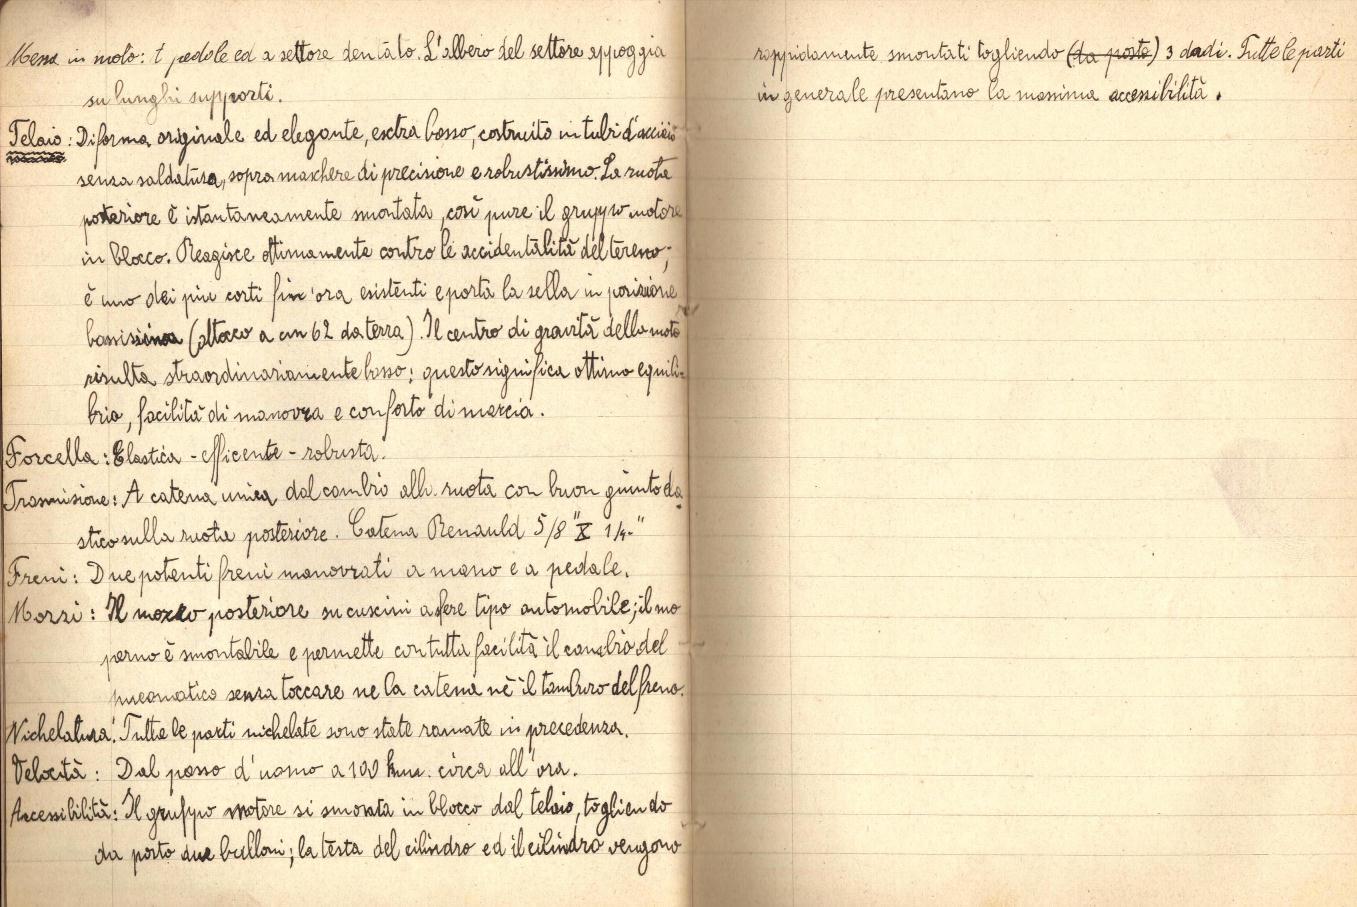 Messa in moto: a pedale ed a settore dentato. L'albero del settore appoggia
su lunghi supporti.
Telaio: Di forma originale ed elegante, extra basso, costruito in tubi d'acciaio
senza saldatura, sopra maschere di precisione e robustissimo. La ruota
posteriore è istantaneamente smontata, così pure il gruppo motore
in blocco. Reagisce ottimamente contro le accidentalità del tereno;
è uno dei piu corti fin'ora esistenti e porta la sella in posizione
bassissima (attacco a cm 62 da terra). Il centro di gravità della moto
risulta straordinariamente basso; questo significa ottimo equili-
brio, facilità di manovra e conforto di marcia.
Forcella: Elastica - efficente - robusta.
Trasmisione: A catena unica dal cambio alla ruota con buon giunto ela
stico sulla ruota posteriore. Catena Renauld 5/8" X 1/4"
Freni: Due potenti freni manovrati a mano e a pedale.
Mozzi: Il mozzo posteriore su cuscini a sfere tipo automobile; il suo
perno è smontabile e permette con tutta facilità il cambio del
pneomatico senza toccare ne la catena nè il tamburo del freno.
Nichelatura: Tutte le parti nichelate sono state ramate in precedenza.
Velocità: Dal passo d'uomo a 100 km. circa all'ora.
Accessibilità: Il gruppo motore si smonta in blocco dal telaio, togliendo
da posto due bulloni; la testa del cilindro ed il cilindro vengono
rappidamente smontati togliendo (da posto) 3 dadi. Tutte le parti
in generale presentano la massima accessibilità.